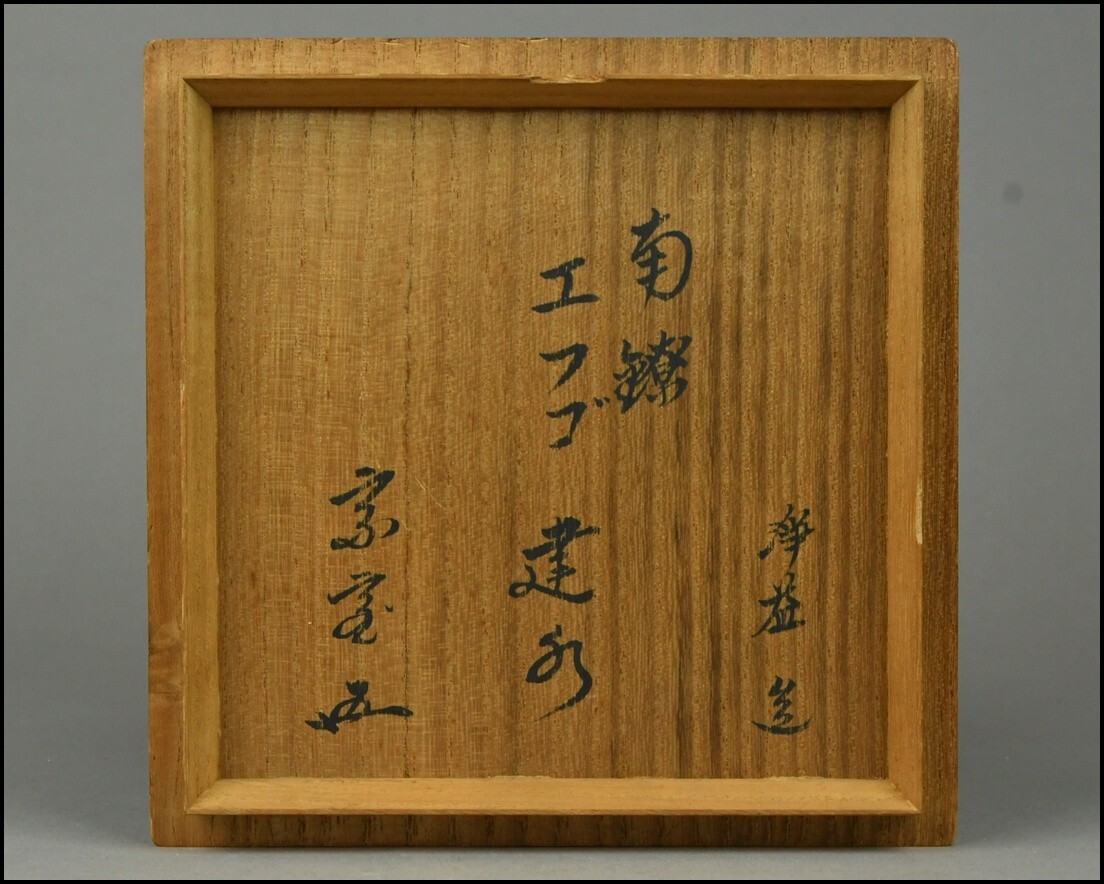 浄益造
南鐐
エフゴ建水
宗室